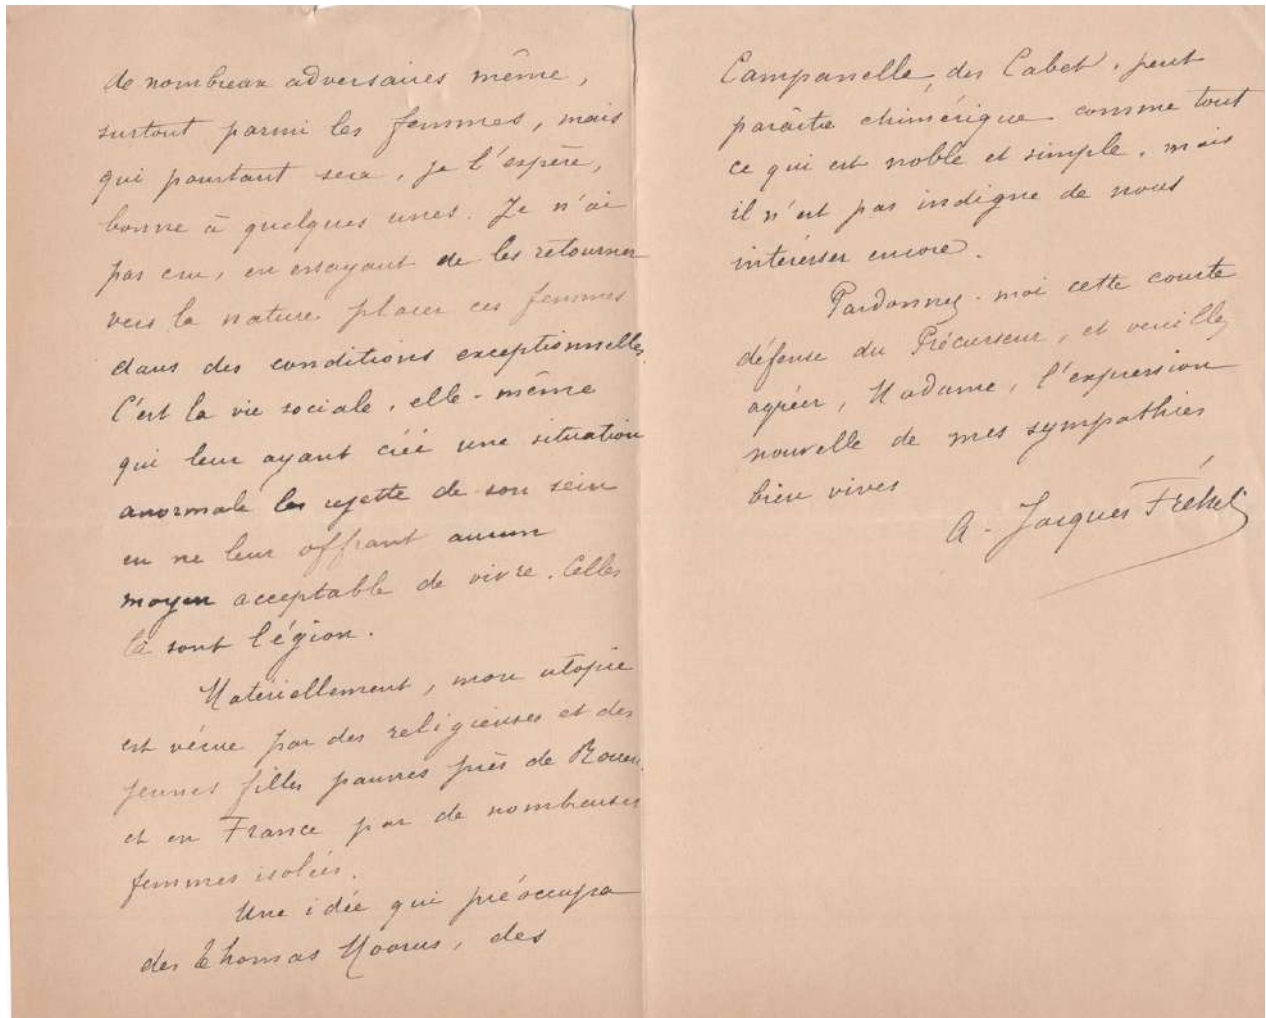 de nombreux adversaires même,
surtout parmi les femmes, mais
qui pourtant sera, je l'espère,
bonne à quelques unes. Je n'ai
pas cru, en essayant de les retourner
vers la nature placer ces femmes
dans des conditions exceptionnelles.
C'est la vie sociale, elle-même
qui leur ayant créé une situation
anormale les rejette de son sein
en ne leur offrant aucun
moyen acceptable de vivre. Celles
là sont légion.
Matériellement, mon utopie
est vécue par des religieuses et des
jeunes filles pauvres près de Rouen,
et en France par de nombreuses
femmes isolées.
Une idée qui préoccupa
des Thomas Moorus, des
Campanelle, des Cabet, peut
paraître chimérique comme tout
ce qui est noble et simple, mais
il n'est pas indigne de nous
intéresser encore.
Pardonnez-moi cette courte
défense du Précurseur, et veuillez
agréer, Madame, l'expression
nouvelle de mes sympathies
bien vives
A - Jacques Fréhel